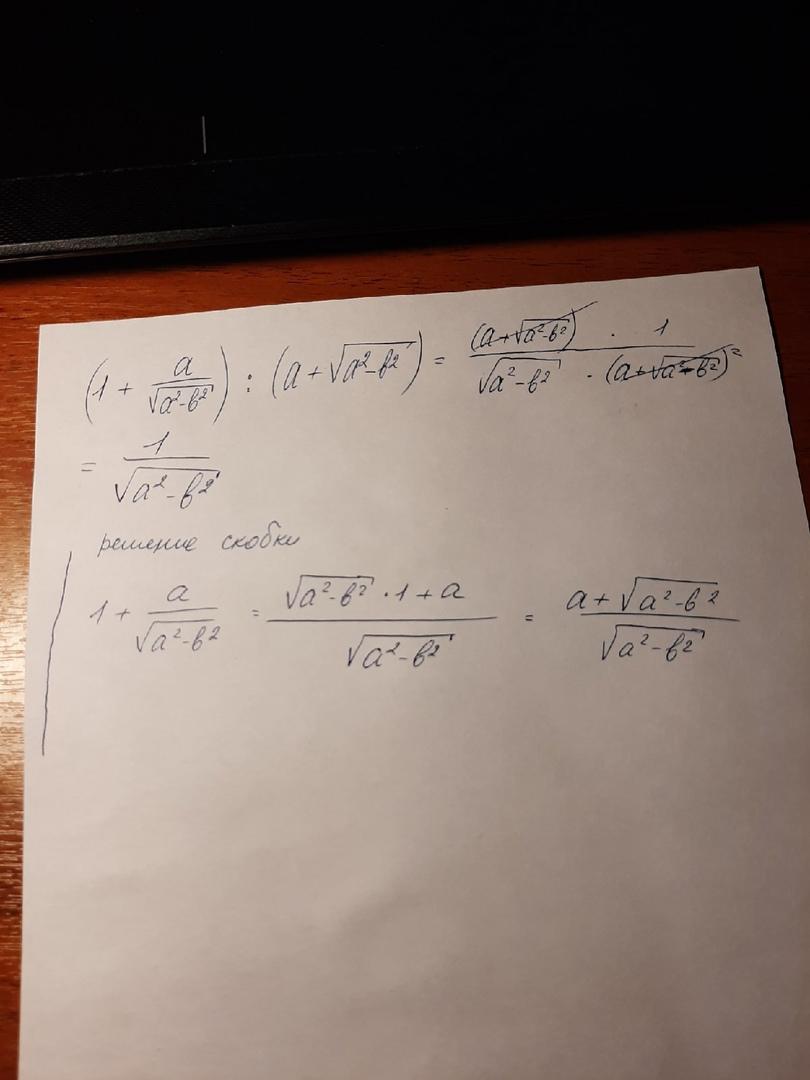 (1 + a/√(a²-b²)) : (a + √(a²-b²)) = ((a+√(a²-b²)) · 1)/(√(a²-b²) · (a+√(a²-b²))) =
= 1/√(a²-b²)
решение скобки
1 + a/√(a²-b²) = (√(a²-b²) · 1 + a)/√(a²-b²) = (a + √(a²-b²))/√(a²-b²)